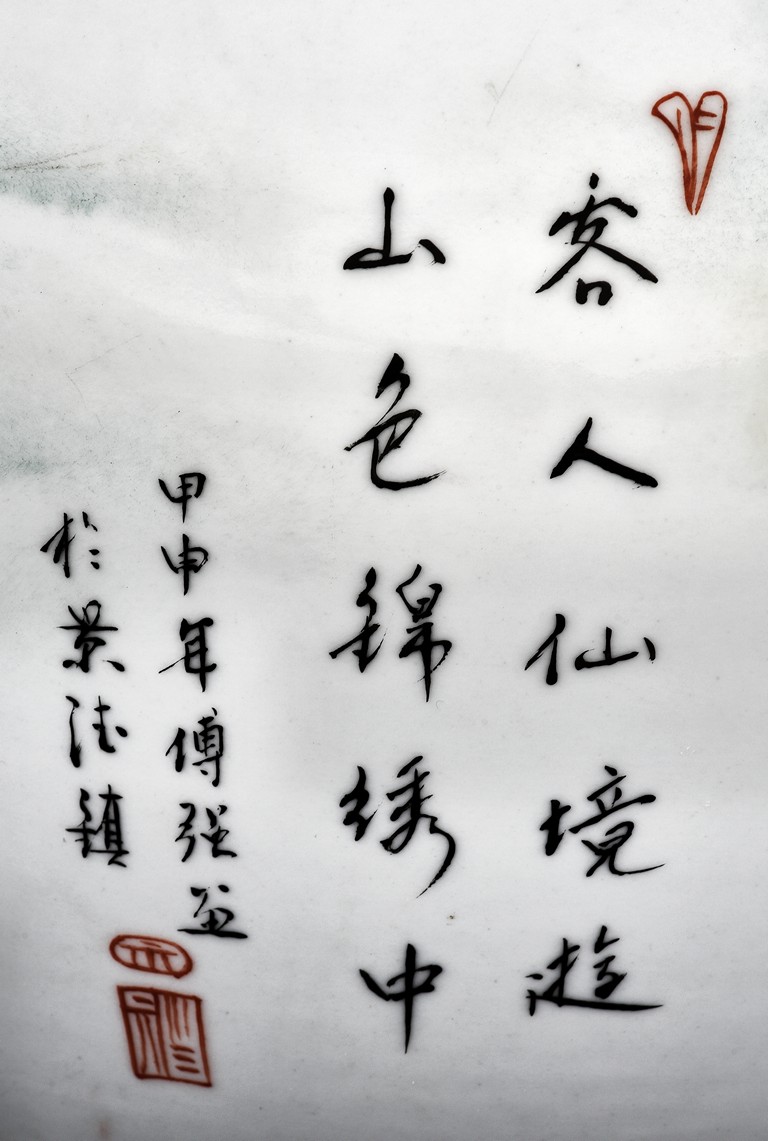 客人仙境遊
山色錦绣中
甲申年傅强益
於景德鎮